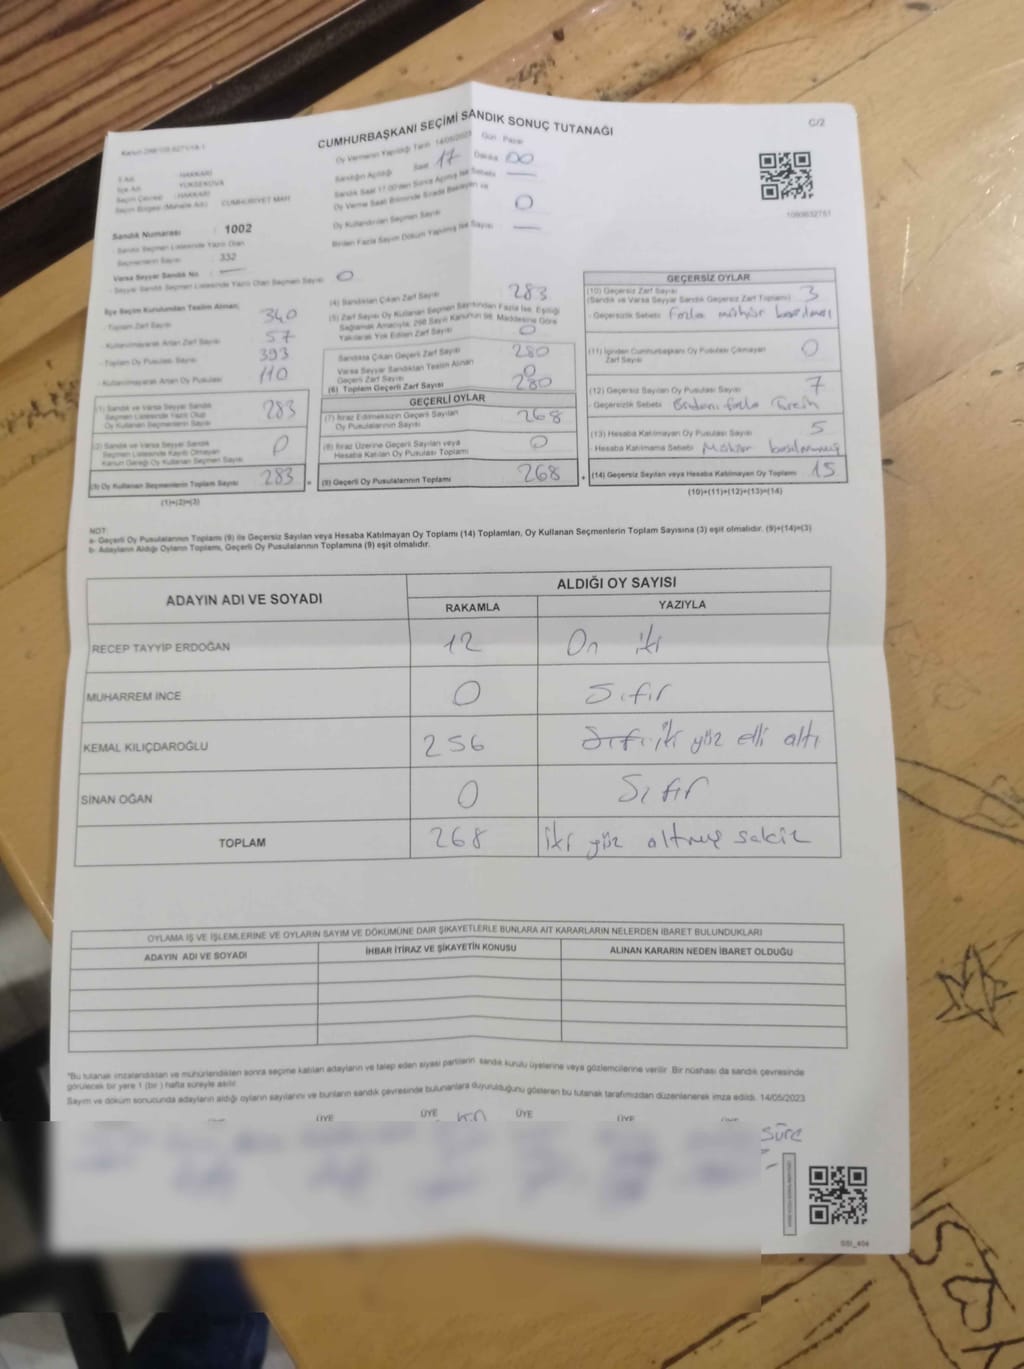 CUMHURBAŞKANI SEÇİMİ SANDIK SONUÇ TUTANAĞI
C/2
Oy Vermenin Yapıldığı Tarih 14/05/2023 Gün Pazar
Sandığın Açıldığı Saat 17 Dakika 00
Sandık Saat 17.00'den Sonra Açılmış İse Sebebi —
Oy Verme Saati Bitiminde Sırada Bekleyen ve
Oy Kullandırılan Seçmen Sayısı 0
Birden Fazla Sayım Döküm Yapılmış İse Sayısı —
1060632751
İl Adı : HAKKARİ
İlçe Adı : YÜKSEKOVA
Seçim Çevresi : HAKKARİ
Seçim Bölgesi (Mahalle Adı) : CUMHURİYET MAH
Sandık Numarası : 1002
Sandık Seçmen Listesinde Yazılı Olan
Seçmenlerin Sayısı : 332
Varsa Seyyar Sandık No : —
- Seyyar Sandık Seçmen Listesinde Yazılı Olan Seçmen Sayısı 0
İlçe Seçim Kurulundan Teslim Alınan;
- Toplam Zarf Sayısı 340
- Kullanılmayarak Artan Zarf Sayısı 57
- Toplam Oy Pusulası Sayısı 393
- Kullanılmayarak Artan Oy Pusulası 110
(1) Sandık ve Varsa Seyyar Sandık
Seçmen Listesinde Yazılı Olup
Oy Kullanan Seçmenlerin Sayısı 283
(2) Sandık ve Varsa Seyyar Sandık
Seçmen Listesinde Kayıtlı Olmayan
Kanun Gereği Oy Kullanan Seçmen Sayısı 0
(3) Oy Kullanan Seçmenlerin Toplam Sayısı 283
(1)+(2)=(3)
(4) Sandıktan Çıkan Zarf Sayısı 283
(5) Zarf Sayısı Oy Kullanan Seçmen Sayısından Fazla İse, Eşitliği
Sağlamak Amacıyla, 298 Sayılı Kanunun 98. Maddesine Göre
Yakılarak Yok Edilen Zarf Sayısı 0
Sandıkta Çıkan Geçerli Zarf Sayısı 280
Varsa Seyyar Sandıktan Teslim Alınan
Geçerli Zarf Sayısı 0
(6) Toplam Geçerli Zarf Sayısı 280
GEÇERLİ OYLAR
(7) İtiraz Edilmeksizin Geçerli Sayılan
Oy Pusulalarının Sayısı 268
(8) İtiraz Üzerine Geçerli Sayılan veya
Hesaba Katılan Oy Pusulası Toplamı 0
(9) Geçerli Oy Pusulalarının Toplamı 268
GEÇERSİZ OYLAR
(10) Geçersiz Zarf Sayısı 3
(Sandık ve Varsa Seyyar Sandık Geçersiz Zarf Toplamı)
- Geçersizlik Sebebi : Fazla mühür basılması
(11) İçinden Cumhurbaşkanı Oy Pusulası Çıkmayan
Zarf Sayısı 0
(12) Geçersiz Sayılan Oy Pusulası Sayısı 7
- Geçersizlik Sebebi : Birden fazla
(13) Hesaba Katılmayan Oy Pusulası Sayısı 5
- Hesaba Katılmama Sebebi : Mühür basılmamış
(14) Geçersiz Sayılan veya Hesaba Katılmayan Oy Toplamı 15
(10)+(11)+(12)+(13)=(14)
NOT:
a- Geçerli Oy Pusulalarının Toplamı (9) ile Geçersiz Sayılan veya Hesaba Katılmayan Oy Toplamı (14) Toplamları, Oy Kullanan Seçmenlerin Toplam Sayısına (3) eşit olmalıdır. (9)+(14)=(3)
b- Adayların Aldığı Oyların Toplamı, Geçerli Oy Pusulalarının Toplamına (9) eşit olmalıdır.
ADAYIN ADI VE SOYADI
ALDIĞI OY SAYISI
RAKAMLA YAZIYLA
RECEP TAYYİP ERDOĞAN 12 On iki
MUHARREM İNCE 0 Sıfır
KEMAL KILIÇDAROĞLU 256 iki yüz elli altı
SİNAN OĞAN 0 Sıfır
TOPLAM 268 iki yüz altmış sekiz
OYLAMA İŞ VE İŞLEMLERİNE VE OYLARIN SAYIM VE DÖKÜMÜNE DAİR ŞİKAYETLERLE BUNLARA AİT KARARLARIN NELERDEN İBARET BULUNDUKLARI
ADAYIN ADI VE SOYADI İHBAR İTİRAZ VE ŞİKAYETİN KONUSU ALINAN KARARIN NEDEN İBARET OLDUĞU
*Bu tutanak imzalandıktan ve mühürlendikten sonra seçime katılan adayların ve talep eden siyasi partilerin sandık kurulu üyelerine veya gözlemcilerine verilir. Bir nüshası da sandık çevresinde
görülecek bir yere 1 (bir) hafta süreyle asılır.
Sayım ve döküm sonucunda adayların aldığı oyların sayılarını ve bunların sandık çevresinde bulunanlara duyurulduğunu gösteren bu tutanak tarafımızdan düzenlenerek imza edildi. 14/05/2023
ÜYE ÜYE ÜYE ÜYE
SSI_404